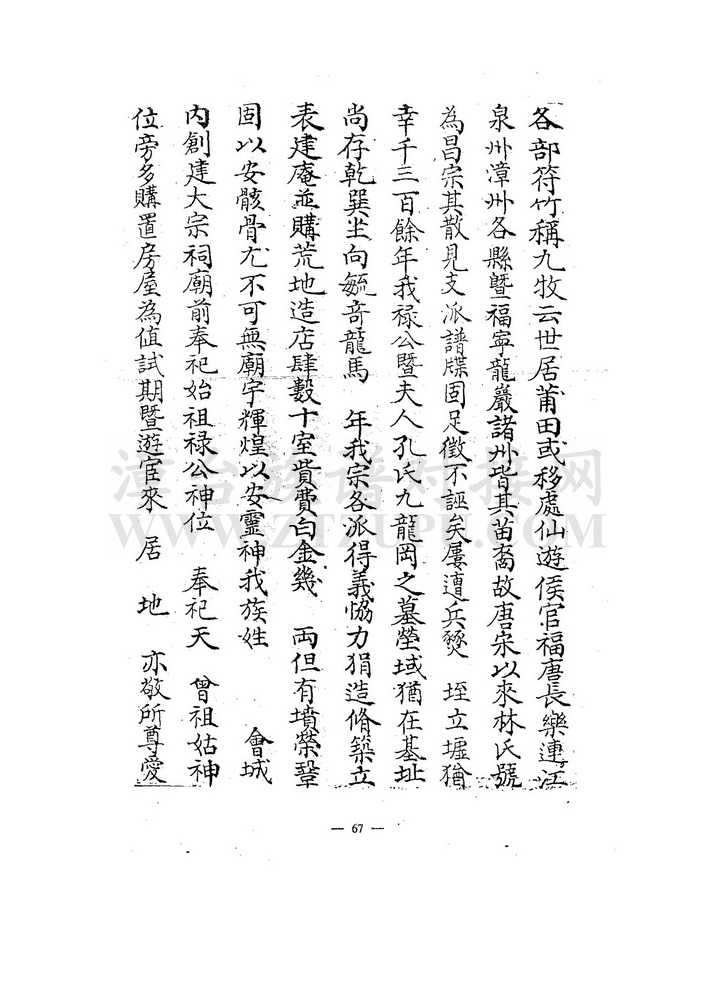 各部符竹稱九牧云世居莆田或移處仙遊侯官福唐長樂連江
泉州漳州各縣暨福寧龍巖諸州皆其苗裔故唐宋以來林氏號
為昌宗其散見支派譜牒固足徵不誣矣屢遭兵燹 垤立墟猶
幸千三百餘年我祿公暨夫人孔氏九龍岡之墓塋域猶在基址
尚存乾巽坐向毓奇龍馬 年我宗各派得義恊力捐造脩築立
表建庵並購荒地造店肆數十室貲費白金幾 两但有墳榮鞏
固以安骸骨尤不可無廟宇輝煌以安靈神我族姓 會城
內創建大宗祠廟前奉祀始祖祿公神位 奉祀天 曾祖姑神
位旁多購置房屋為值試期暨遊官來 居 地 亦敬所尊愛
漳台族谱对接网
WWW.ZTZUPU.COM
— 67 —